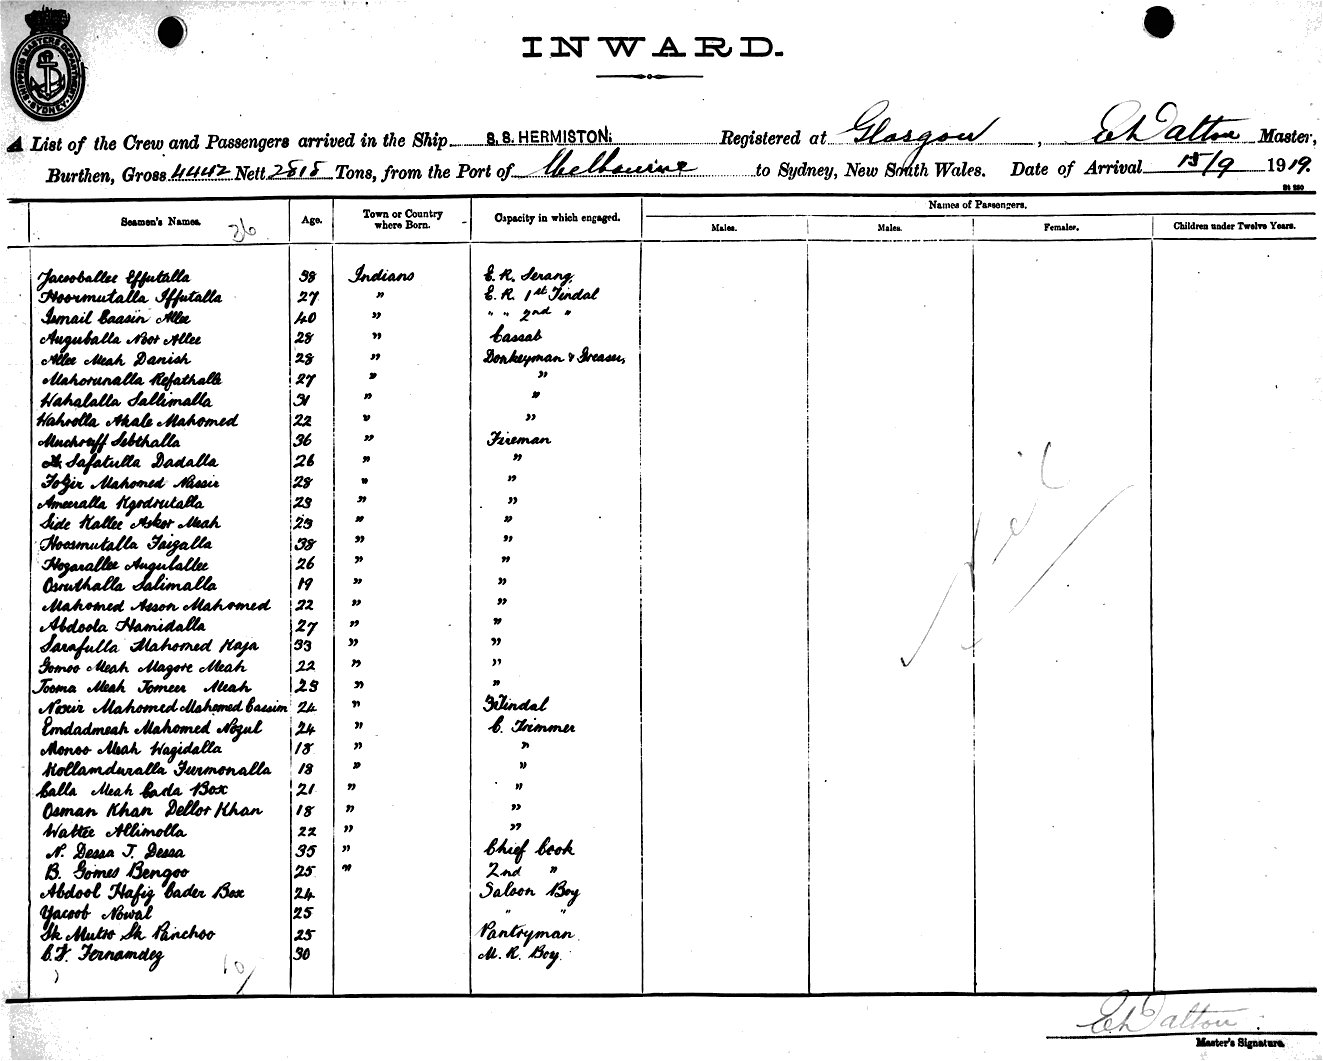 SHIPPING MASTERS DEPARTMENT
SYDNEY
INWARD.
A List of the Crew and Passengers arrived in the Ship S.S. HERMISTON. Registered at Glasgow, E h Dalton Master,
Burthen, Gross 4442 Nett 2818 Tons, from the Port of Melbourne to Sydney, New South Wales. Date of Arrival 15/9 1919.
Seamen's Names. Age. Town or Country where Born. Capacity in which engaged. Names of Passengers.
Males. Males. Females. Children under Twelve Years.
36
Jacooballee Effutalla 38 Indians E. R. Serang
Hoormutalla Iffutalla 27 " E. R. 1st Tindal
Ismail Caasin Allee 40 " " " 2nd "
Auguballa Noor Allee 28 " Cassab
Allee Meah Danish 28 " Donkeyman & Greaser,
Mahorunalla Refathalla 27 " "
Wahalalla Sallimalla 31 " "
Wahrolla Akale Mahomed 22 " "
Muchruff Sebthalla 36 " Fireman
Safatulla Dadalla 26 " "
Fozir Mahomed Nassir 28 " "
Ameeralla Kgodrutalla 28 " "
Side Kallee Asker Meah 28 " "
Hoosmutalla Faizalla 38 " "
Hozarallee Augulallee 26 " "
Osruthalla Salimalla 19 " "
Mahomed Asson Mahomed 22 " "
Abdoola Hamidalla 27 " "
Sarafulla Mahomed Kaja 33 " "
Gomoo Meah Magore Meah 22 " "
Tooma Meah Tomeer Meah 23 " "
Nosir Mahomed Mahomed Cassim 24 " Tindal
Emdadmeah Mahomed Nozul 24 " C. Trimmer
Monoo Meah Wagidalla 18 " "
Kollamduralla Furmonalla 18 " "
Calla Meah Cada Box 21 " "
Osman Khan Dellor Khan 18 " "
Wattee Allimolla 22 " "
N. Dessa J. Dessa 35 " Chief Cook
B. Gomes Bengoo 25 " 2nd "
Abdool Hafig Cader Box 24 Saloon Boy
Yacoob Nowal 25 " "
Sk Mutro Sk Panchoo 25 Pantryman
C. F. Fernamdez 30 M. R. Boy.
Nil
10/
E h Dalton
Master's Signature.